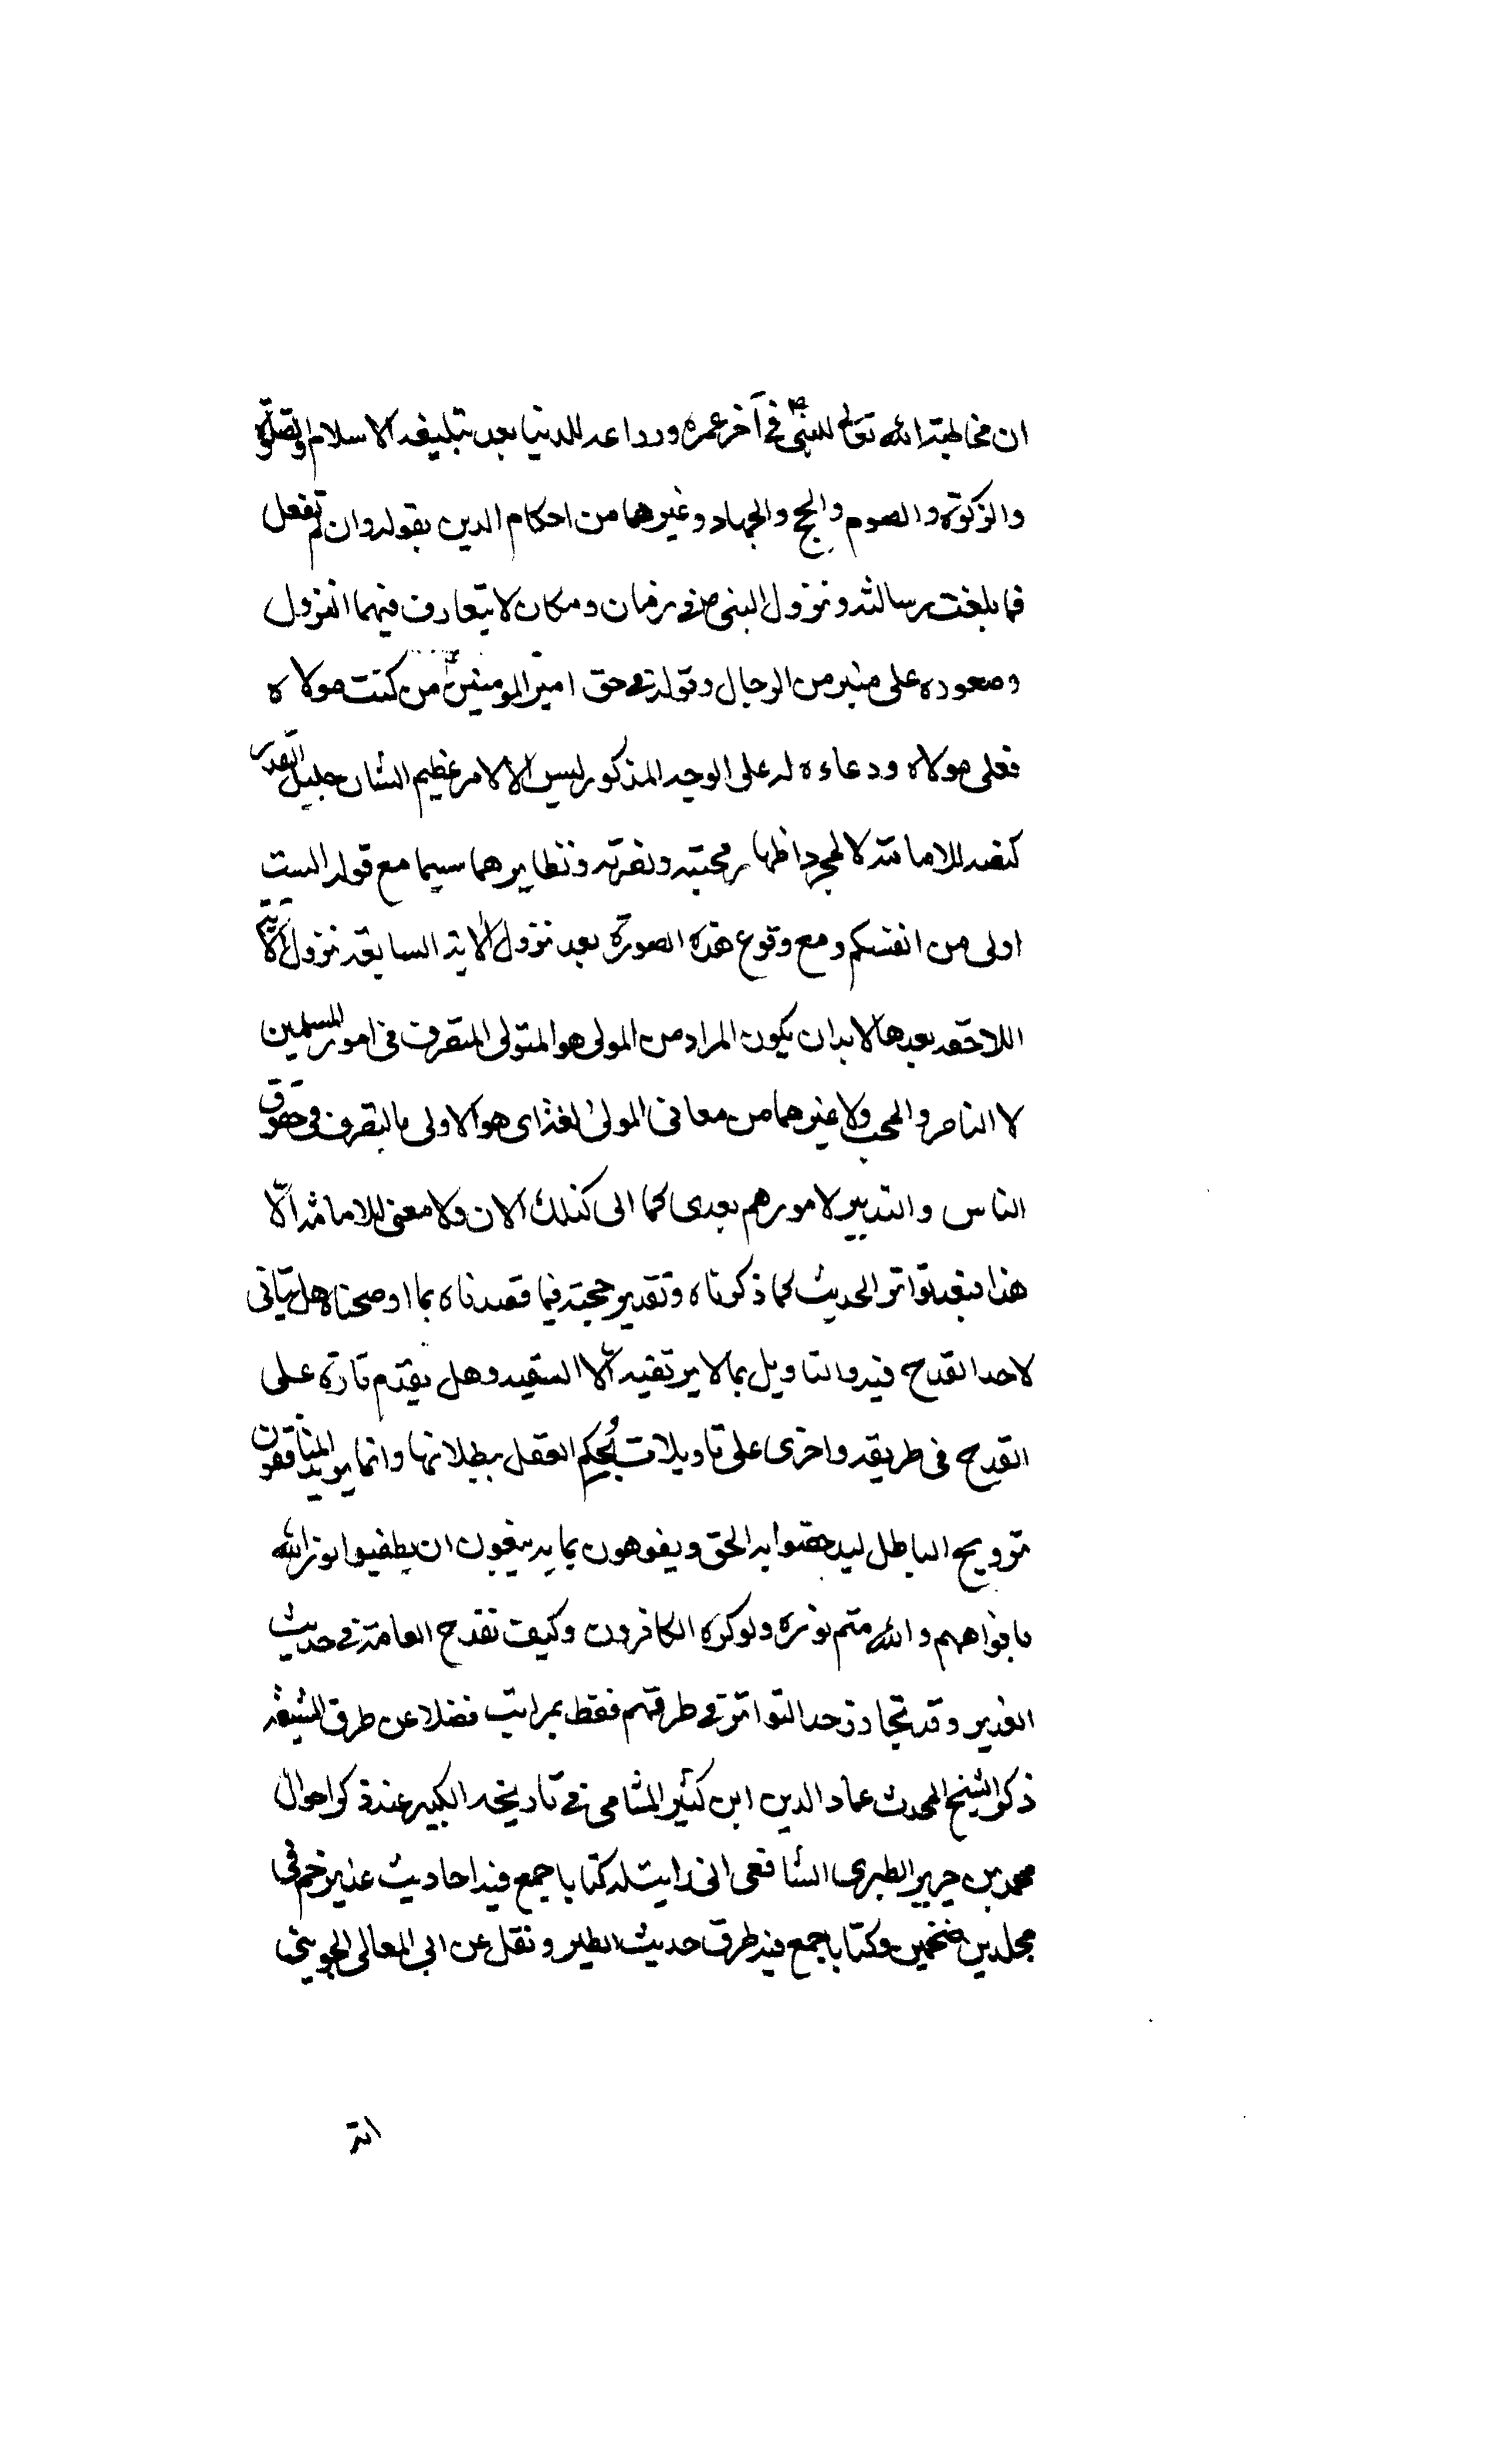 ان مخاطبة الله تعالى للنبی ص فی آخر عمره ووداعه للدنیا بعد تبلیغه الاسلام والصلوة
والزکوة والصوم والحج والجهاد وغیرهما من احکام الدین بقوله وان لم تفعل
فما بلغت رسالته ونزول النبی ص فی زمان ومکان لا یتعارف فیهما النزول
وصعوده علی منبر من الرحال وقوله فی حق امیر المومنین ع من کنت مولاه
فعلی مولاه ودعاءه له علی الوجه المذکور لیس الا لامر عظیم الشان جلیل القدر
کنصه للامامته لا لمجرد اظهار محبته ونصرته ونظایرهما سیما مع قوله الست
اولی من انفسکم ومع وقوع هذه الصورة بعد نزول الایة السابقة نزول الآیة
اللاحقة بعدها لا بد ان یکون المراد من المولی هو المتولی المتصرف فی امور المسلمین
لا الناصر والمحب ولا غیرهما من معانی المولی لغة ای هو الاولی بالتصرف فی حقوق
الناس والتدبیر لامورهم بعدی کما الی کذلک الان ولا معنی للامامة الّا
هذا فبعد تواتر الحدیث کما ذکرناه وتقدیر حجیته فیما قصدناه بما اوضحناه هل یتاتی
لاحد القدح فیه والتاویل بما لا یرتضیه الّا السفیه وهل یقدم تارة علی
القدح فی طریقه واخری علی تاویلات یُحکم العقل ببطلانها وانما یرید المنافقون
ترویج الباطل لیدحضوا به الحق ویفوهون بما به یبغون ان یطفیوا نور الله
بافواههم والله متم نوره ولو کره الکافرون وکیف تقدح العامة فی حدیث
الغدیر وقد تجاوز حد التواتر فی طرقهم فقط بمراتب فضلا عن طرق الشیعة
ذکر الشیخ المحدث عماد الدین ابن کثیر الشامی فی تاریخه الکبیر عند ذکر احوال
محمد بن جریر الطبری الشافعی انی رایت له کتابا جمع فیه احادیث غدیر خم فی
مجلدین ضخمین وکتابا جمع فیه طرق حدیث الطیر ونقل عن ابی المعالی الجوینی
انه